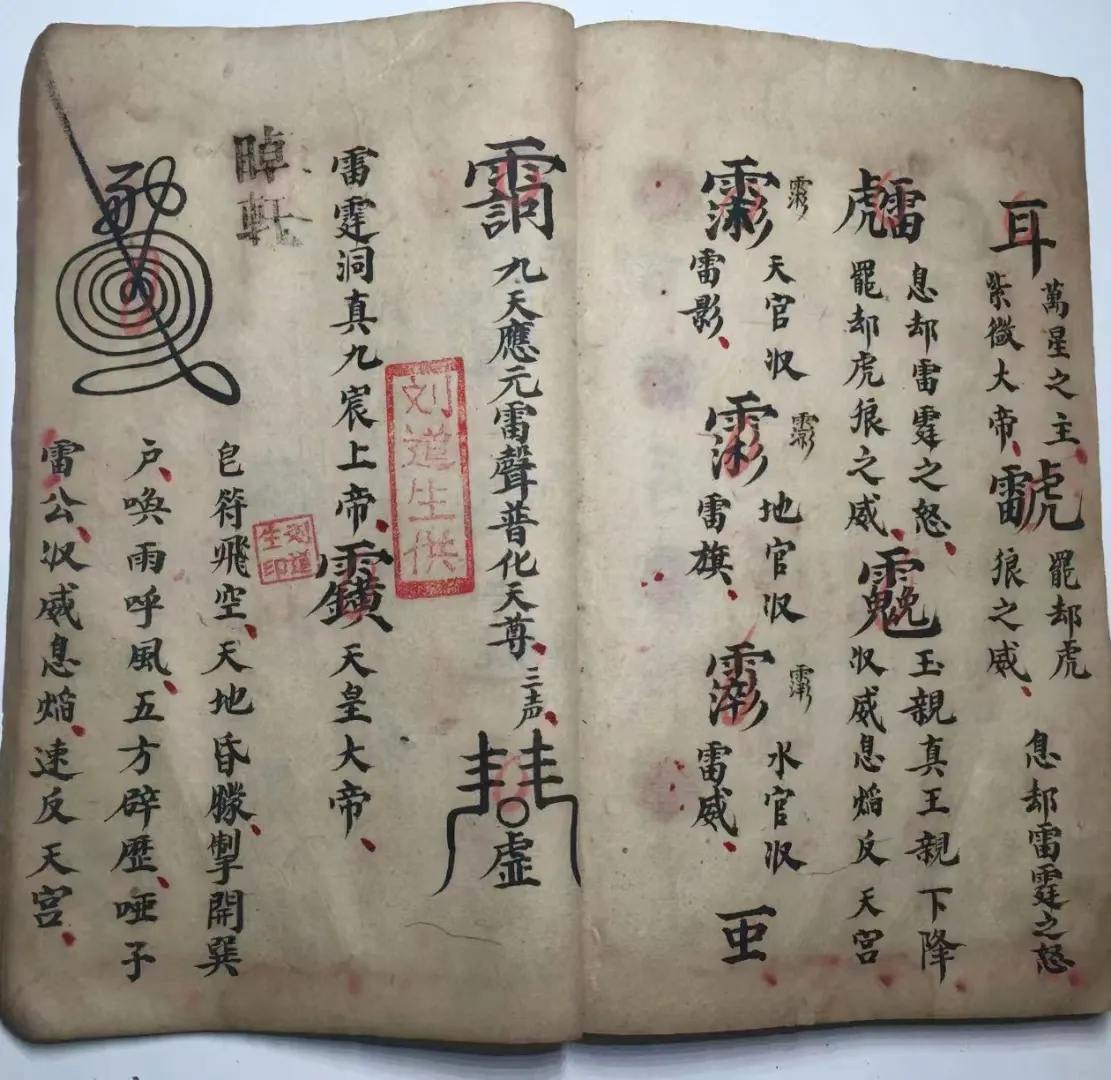 耳
萬星之主
紫微大帝
罷却虎
狼之威
息却雷霆之怒
息却雷霆之怒
罷却虎狼之威
玉親真王親下降
収威息焰反天宮
天官収
雷影
地官収
雷旗
水官収
雷威
九天應元雷聲普化天尊 三声
虚
雷霆洞真九宸上帝
天皇大帝
刘道生供
刘道生印
皂符飛空天地昏朦掣開巽
户喚雨呼風五方辟歷唖子
雷公収威息焰速反天宮